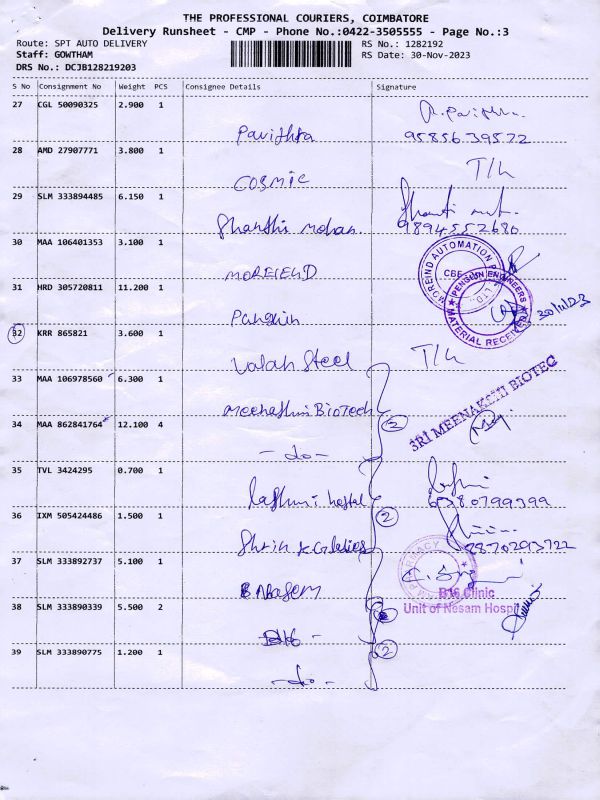 THE PROFESSIONAL COURIERS, COIMBATORE
Delivery Runsheet - CMP - Phone No.:0422-3505555 - Page No.:3
Route: SPT AUTO DELIVERY RS No.: 1282192
Staff: GOWTHAM RS Date: 30-Nov-2023
DRS No.: DCJB128219203
S No Consignment No Weight PCS Consignee Details Signature
27 CGL 50090325 2.900 1
Pavithra 9585639522
28 AMD 27907771 3.800 1
COSMIC T/L
29 SLM 333894485 6.150 1
Shanthi mohan. 9894552680
30 MAA 106401353 3.100 1
31 HRD 305720811 11.200 1
PENGUIN ENGINEERS
MATERIAL RECEIVED
30/11/23
32 KRR 865821 3.600 1
Steel T/L
33 MAA 106978560 6.300 1
Meenakshi BioTech
SRI MEENAKSHI BIOTEC
34 MAA 862841764 12.100 4
2
- do -
35 TVL 3424295 0.700 1
hostal
36 IXM 505424486 1.500 1
2
8870293722
37 SLM 333892737 5.100 1
B16 Clinic
Unit of Nesam Hospi
38 SLM 333890339 5.500 2
39 SLM 333890775 1.200 1
2
- do -